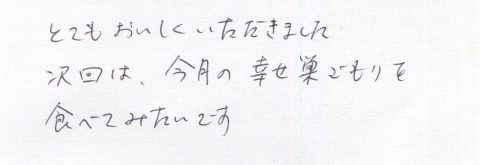 とてもおいしくいただきました
次回は、今月の幸せ巣ごもりを
食べてみたいです